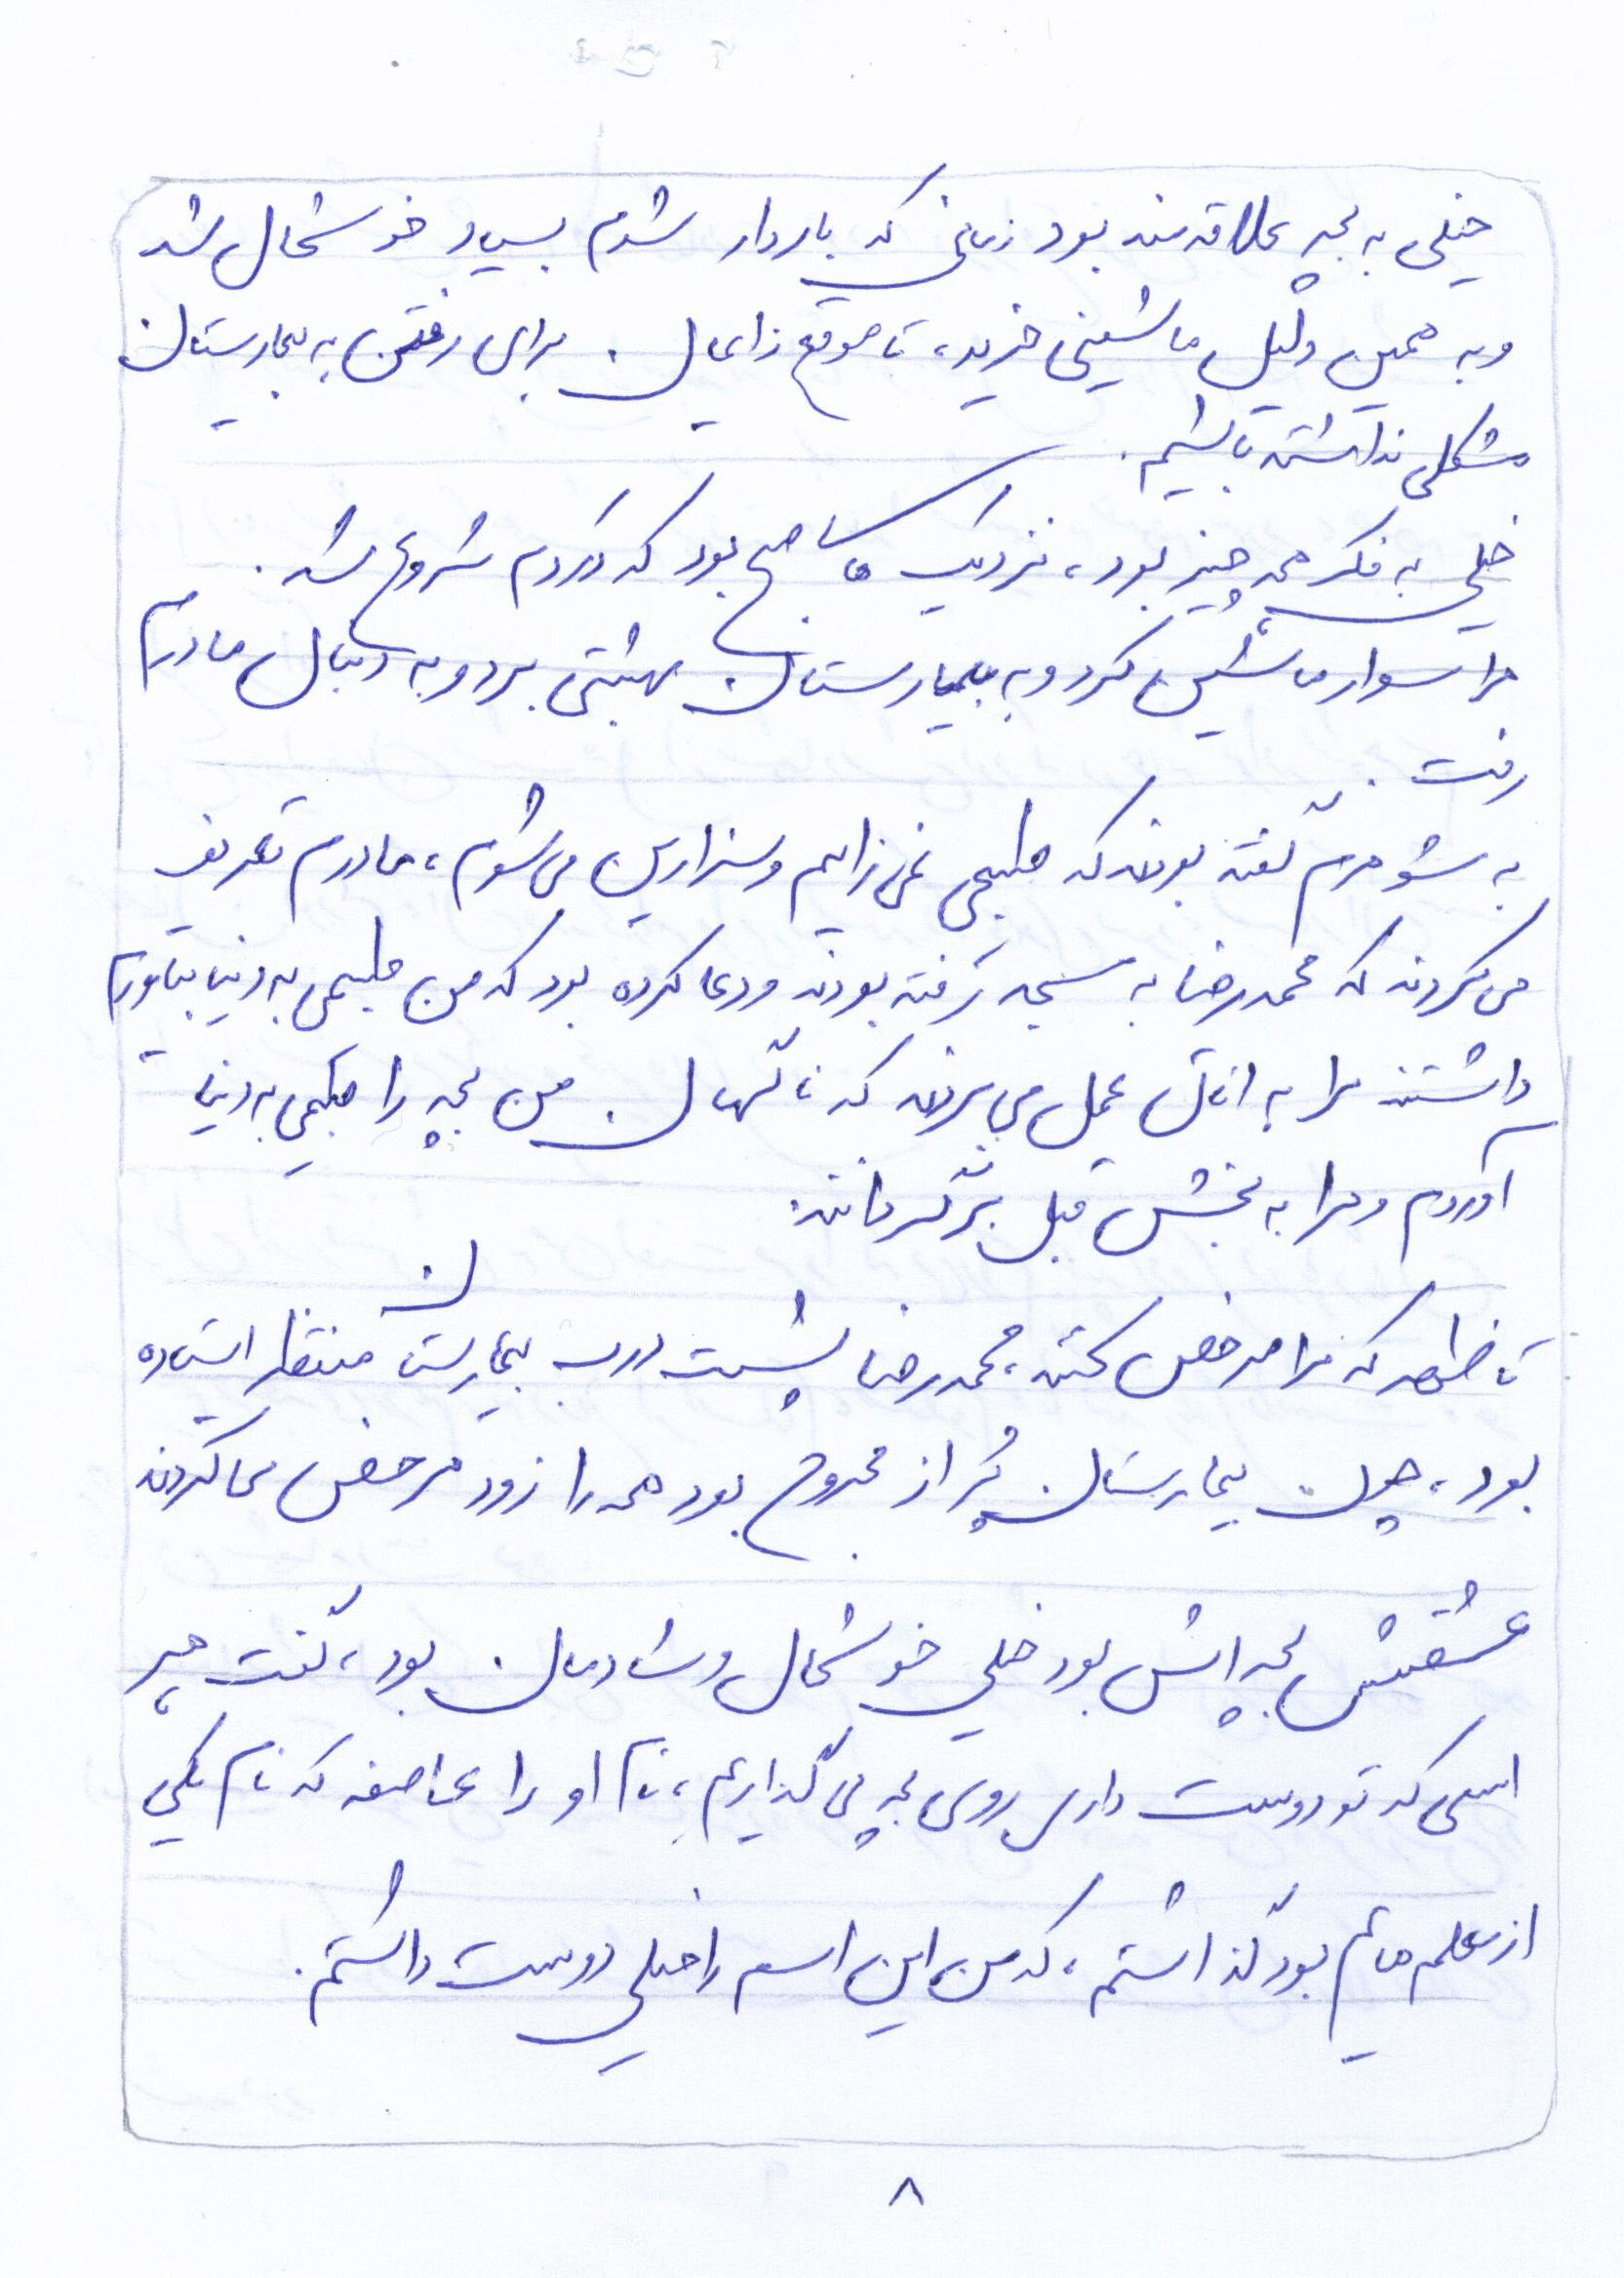 خیلی به بچه علاقه مند بود زمانی که باردار شدم بسیار خوشحال شد
و به همین دلیل ماشینی خرید، تا موقع زایمان برای رفتن به بیمارستان
مشکلی نداشته باشیم.
خیلی به فکر همه چیز بود، نزدیک صبح بود که دردم شروع شد.
مرا سوار ماشین کرد و به بیمارستان بهشتی برد و به دنبال مادرم
رفت.
به شوهرم گفته بودند که طبیعی نمی زایم و سزارین می شوم، مادرم تعریف
می کردند که محمدرضا به مسجد رفته بودند و دعا کرده بود که من طبیعی به دنیا بیاورم
داشتند مرا به اتاق عمل می بردند که ناگهان من بچه را طبیعی به دنیا
آوردم و مرا به بخش قبل برگرداندند.
تا ظهر که مرا مرخص کنند، محمدرضا پشت درب بیمارستان منتظر ایستاده
بود، چون بیمارستان پُر از مجروح بود همه را زود مرخص می کردند
عشقش بچه اش بود خیلی خوشحال و شادمان بود، گفت هر
اسمی که تو دوست داری روی بچه می گذاریم، نام او را عاصفه که نام یکی
از معلم هایم بود گذاشتم، که من این اسم را خیلی دوست داشتم.
۸